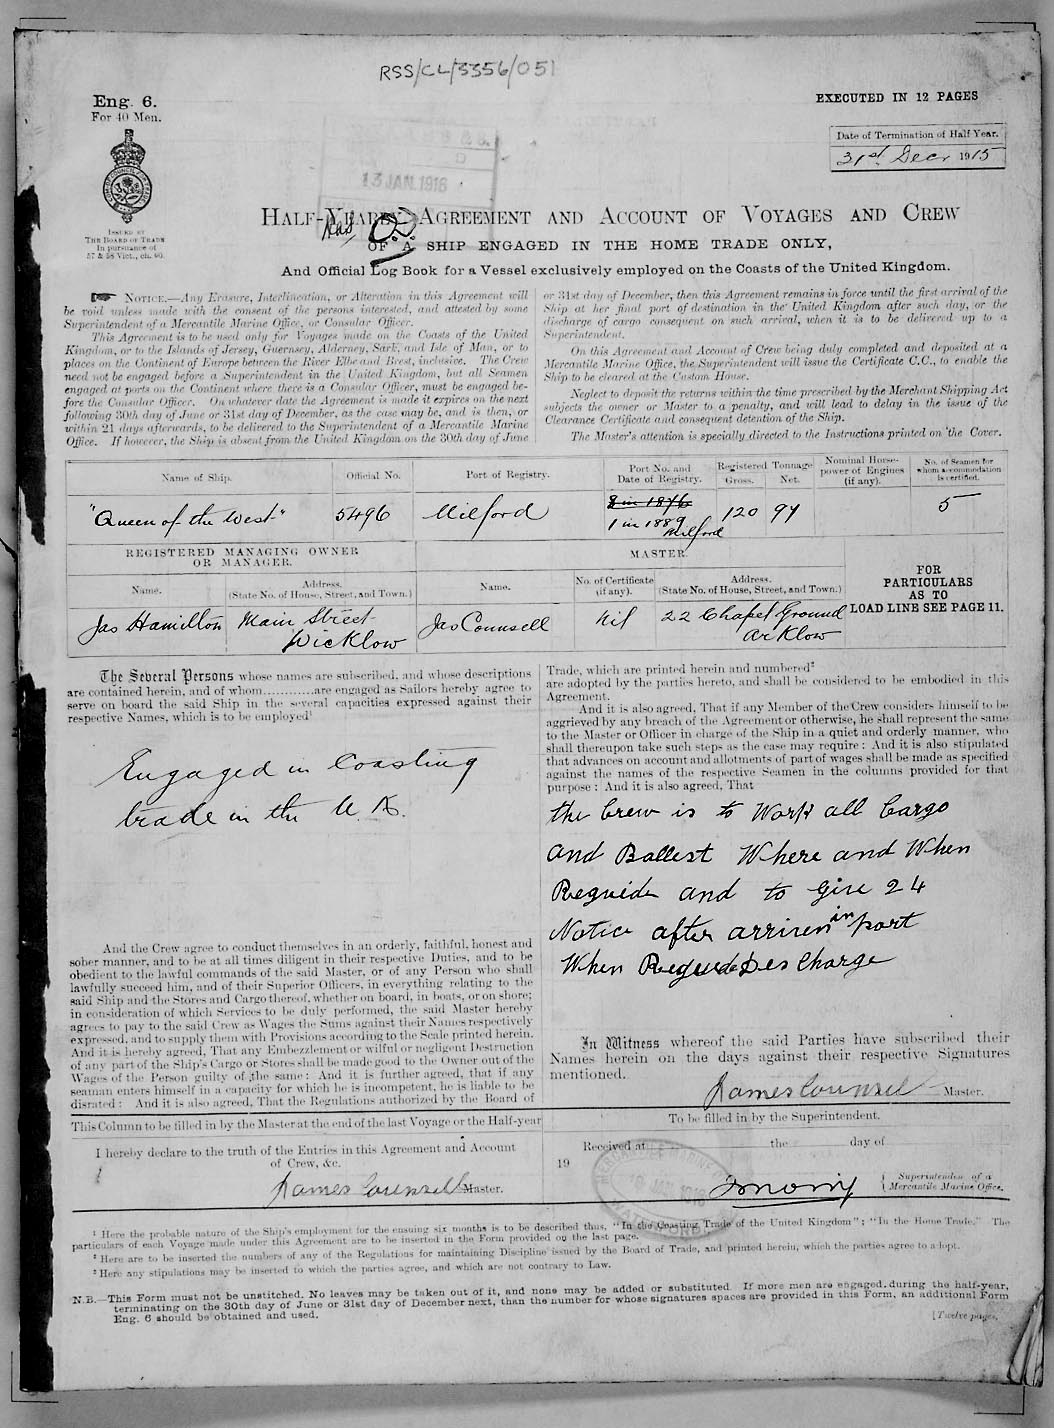 RSS/CL/3356/051
Eng. 6.
For 40 Men.
EXECUTED IN 12 PAGES
Date of Termination of Half Year.
31st Decr 1915
13 JAN. 1916
ISSUED BY
THE BOARD OF TRADE
In pursuance of
57 & 58 Vict., ch. 60.
HALF-YEARLY AGREEMENT AND ACCOUNT OF VOYAGES AND CREW
OF A SHIP ENGAGED IN THE HOME TRADE ONLY,
And Official Log Book for a Vessel exclusively employed on the Coasts of the United Kingdom.
NOTICE.—Any Erasure, Interlineation, or Alteration in this Agreement will
be void unless made with the consent of the persons interested, and attested by some
Superintendent of a Mercantile Marine Office, or Consular Officer.
This Agreement is to be used only for Voyages made on the Coasts of the United
Kingdom, or to the Islands of Jersey, Guernsey, Alderney, Sark, and Isle of Man, or to
places on the Continent of Europe between the River Elbe and Brest, inclusive. The Crew
need not be engaged before a Superintendent in the United Kingdom, but all Seamen
engaged at ports on the Continent where there is a Consular Officer, must be engaged be-
fore the Consular Officer. On whatever date the Agreement is made it expires on the next
following 30th day of June or 31st day of December, as the case may be, and is then, or
within 21 days afterwards, to be delivered to the Superintendent of a Mercantile Marine
Office. If however, the Ship is absent from the United Kingdom on the 30th day of June
or 31st day of December, then this Agreement remains in force until the first arrival of the
Ship at her final port of destination in the United Kingdom after such day, or the
discharge of cargo consequent on such arrival, when it is to be delivered up to a
Superintendent.
On this Agreement and Account of Crew being duly completed and deposited at a
Mercantile Marine Office, the Superintendent will issue the Certificate C.C., to enable the
Ship to be cleared at the Custom House.
Neglect to deposit the returns within the time prescribed by the Merchant Shipping Act
subjects the owner or Master to a penalty, and will lead to delay in the issue of the
Clearance Certificate and consequent detention of the Ship.
The Master's attention is specially directed to the Instructions printed on the Cover.
Name of Ship. Official No. Port of Registry. Port No. and Date of Registry. Registered Tonnage Gross. Net. Nominal Horse-power of Engines (if any). No. of Seamen for whom accommodation is certified.
"Queen of the West" 5496 Milford 8 in 1876 1 in 1889 Milford 120 94 5
REGISTERED MANAGING OWNER OR MANAGER. MASTER.
Name. Address. (State No. of House, Street, and Town.) Name. No. of Certificate (if any). Address. (State No. of House, Street, and Town.)
FOR PARTICULARS AS TO LOAD LINE SEE PAGE 11.
Jas Hamilton Main Street Wicklow Jas Counsell Nil 22 Chapel Ground Arklow
The Several Persons whose names are subscribed, and whose descriptions
are contained herein, and of whom............are engaged as Sailors hereby agree to
serve on board the said Ship in the several capacities expressed against their
respective Names, which is to be employed¹
Engaged in Coasting
trade in the U.K.
And the Crew agree to conduct themselves in an orderly, faithful, honest and
sober manner, and to be at all times diligent in their respective Duties, and to be
obedient to the lawful commands of the said Master, or of any Person who shall
lawfully succeed him, and of their Superior Officers, in everything relating to the
said Ship and the Stores and Cargo thereof, whether on board, in boats, or on shore;
in consideration of which Services to be duly performed, the said Master hereby
agrees to pay to the said Crew as Wages the Sums against their Names respectively
expressed, and to supply them with Provisions according to the Scale printed herein.
And it is hereby agreed, That any Embezzlement or wilful or negligent Destruction
of any part of the Ship's Cargo or Stores shall be made good to the Owner out of the
Wages of the Person guilty of the same: And it is further agreed, that if any
seaman enters himself in a capacity for which he is incompetent, he is liable to be
disrated: And it is also agreed, That the Regulations authorized by the Board of
Trade, which are printed herein and numbered²
are adopted by the parties hereto, and shall be considered to be embodied in this
Agreement.
And it is also agreed, That if any Member of the Crew considers himself to be
aggrieved by any breach of the Agreement or otherwise, he shall represent the same
to the Master or Officer in charge of the Ship in a quiet and orderly manner, who
shall thereupon take such steps as the case may require: And it is also stipulated
that advances on account and allotments of part of wages shall be made as specified
against the names of the respective Seamen in the columns provided for that
purpose: And it is also agreed, That
the Crew is to Work all Cargo
and Ballest Where and When
Reguide and to give 24
Notice after arriven in port
When Regude Des Charge
In Witness whereof the said Parties have subscribed their
Names herein on the days against their respective Signatures
mentioned.
James Counsell Master.
This Column to be filled in by the Master at the end of the last Voyage or the Half-year
I hereby declare to the truth of the Entries in this Agreement and Account
of Crew, &c.
James Counsell Master.
To be filled in by the Superintendent.
Received at the day of
19
Superintendent of a
Mercantile Marine Office.
MERCANTILE MARINE
JAN 1916
¹ Here the probable nature of the Ship's employment for the ensuing six months is to be described thus, "In the Coasting Trade of the United Kingdom"; "In the Home Trade." The
particulars of each Voyage made under this Agreement are to be inserted in the Form provided on the last page.
² Here are to be inserted the numbers of any of the Regulations for maintaining Discipline issued by the Board of Trade, and printed herein, which the parties agree to adopt.
³ Here any stipulations may be inserted to which the parties agree, and which are not contrary to Law.
N.B.—This Form must not be unstitched. No leaves may be taken out of it, and none may be added or substituted. If more men are engaged during the half-year,
terminating on the 30th day of June or 31st day of December next, than the number for whose signatures spaces are provided in this Form, an additional Form
Eng. 6 should be obtained and used.
[Twelve pages.